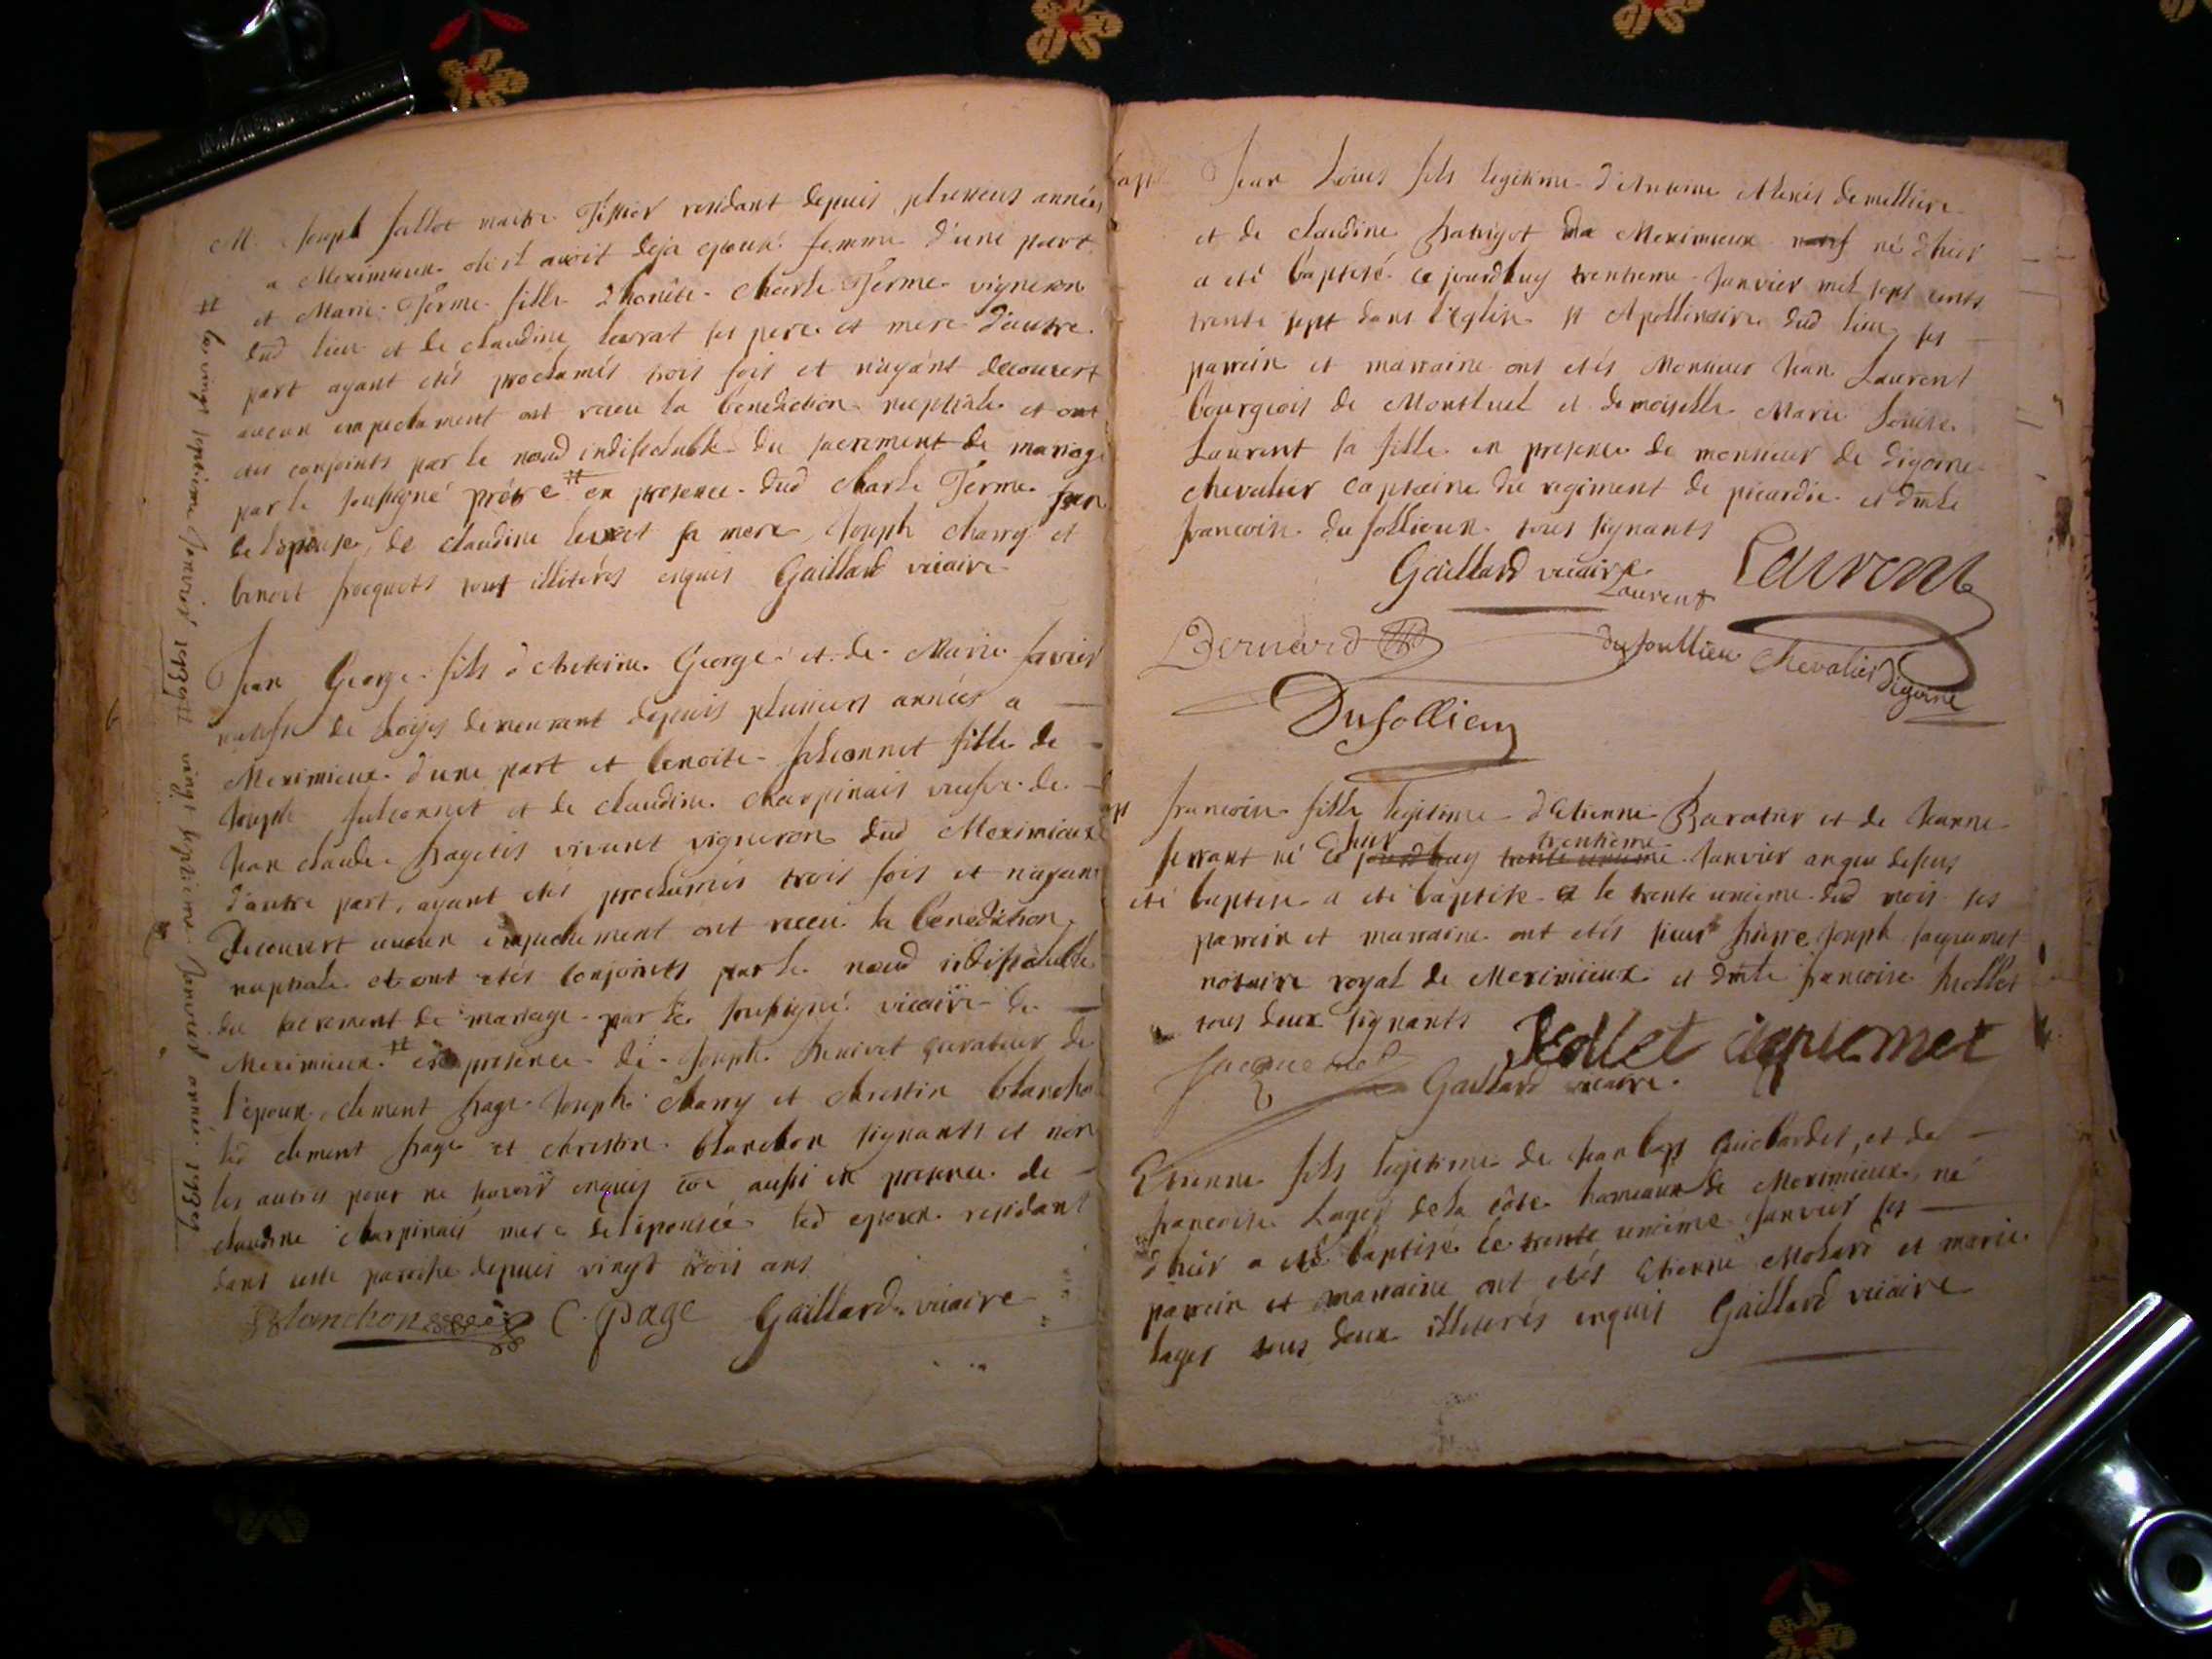 M. Joseph fallot maitre Tissier residant depuis plusieurs années
a Meximieux ou il avoit deja epousé femme d'une part
et Marie Ferme fille d'honête Charle Ferme vigneron
dud lieu et de claudine levrat ses pere et mere d'autre
part ayant etés proclamés trois fois et n'ayant decouvert
aucun empechement ont receu la benediction nuptiale et ont
etés conjoints par le nœud indissoluble du sacrement de mariage
par le soussigné prêtre # en presence dud charle Ferme pere
de l'epouse, de claudine levrat sa mere, Joseph charry et
benoit tous illiterés enquis Gaillard vicaire
# le vingt septieme Janvier 1737 # vingt septieme Janvier année 1737
Jean George fils d'Antoine George et de Marie
de demeurant depuis plusieurs années a
Meximieux d'une part et benoite falconnet fille de
Joseph falconnet et de claudine charpinais veufve de
Jean claude vivant vigneron dud Meximieux
d'autre part, ayant etés proclamés trois fois et n'ayant
decouvert aucun empechement ont receu la benediction
nuptiale et ont etés conjoints par le nœud indissoluble
du sacrement de mariage par le soussigné vicaire de
Meximieux # en presence de Joseph curateur de
l'epoux, clement page Joseph charry et chrestin blanchon
led clement page et chrestin blanchon signants et non
les autres pour ne scavoir enquis aussi en presence de
claudine charpinais mere de l'epousée led epoux residant
dans cette paroisse depuis vingt trois ans
Blanchon C. page Gaillard vicaire
bapt Jean Louis fils legitime d'Antoine Alexis demilliere
et de claudine de Meximieux né d'hier
a eté baptisé ce jourdhuy trentieme Janvier mil sept cents
trente sept dans l'Eglise st Apollinaire dud lieu ses
parrein et marraine ont etés Monsieur Jean Laurent
bourgeois de Montluel et demoiselle Marie Louise
Laurent sa fille en presence de monsieur de digoine
chevalier capitaine du regiment de picardie et dmlle
francoise du sollieux tous signants
Gaillard vicaire Laurent Laurent
Bernard dusoullieu Chevalier digoine
Dusollieu
francoise fille legitime d'Etienne Baratier et de Jeanne
hier trentieme
ferrant né ce jourdhuy trente unieme Janvier an que dessus
eté baptise a eté baptise le trente unieme dud mois ses
parrein et marraine ont etés sieur pierre Joseph Jacquemet
notaire royal de Meximieux et dmlle francoise
tous deux signants
Jacquemet Gaillard vicaire.
Etienne fils legitime de Jean bapt Guichardet, et de
francoise Lager de la côte hameau de Meximieux, né
d'hier a eté baptisé le trente unieme Janvier ses
parrein et marraine ont etés Etienne Molard et marie
Lager tous deux illiterés enquis Gaillard vicaire